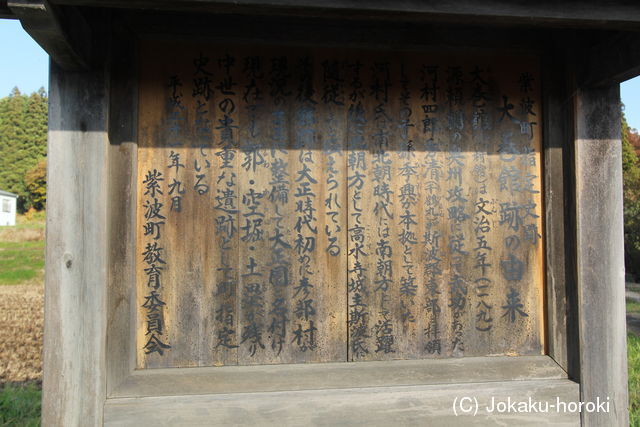 紫波町指定文化財
大巻館跡の由来
大巻館(新館)は文治五年(一一八九)
源頼朝の奥州攻略に従って戦功があった
河村四郎秀清(千鶴丸)が斯波郡東部を拝領
してその子孫本興が本拠として築いた
河村氏は南北朝時代には南朝方として活躍
するが後北朝方として高水寺城主斯波氏に
随従したと伝えられている
は大正時代初めに彦部村が
現況の に整備して大正園と名付け
現在でも郭・空堀・土塁が残り
中世の貴重な遺跡として町指定
史跡となっている
平成 年九月
紫波町教育委員会
(C) Jokaku-horoki